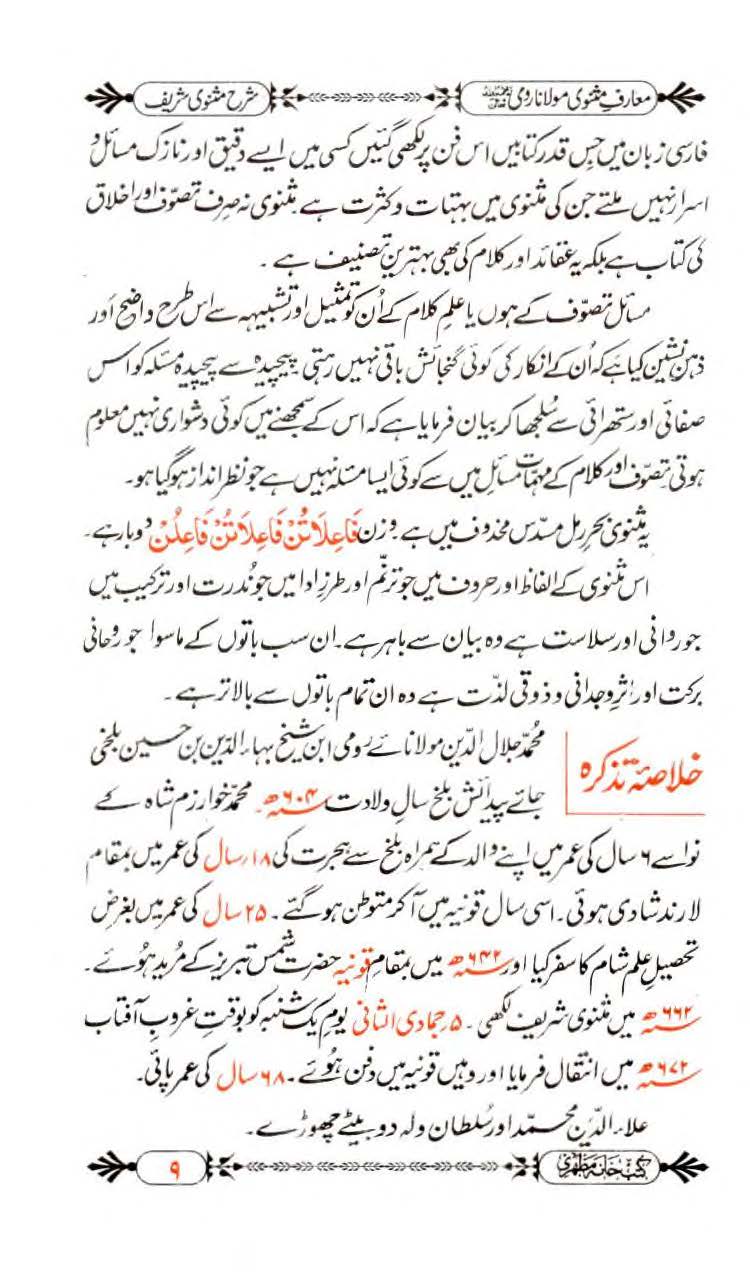 معارفِ مثنوی مولانا رومی
شرح مثنوی شریف
فارسی زبان میں جس قدر کتابیں اس فن پر لکھی گئیں کسی میں ایسے دقیق اور نازک مسائل و
اسرار نہیں ملتے جن کی مثنوی میں بہتات و کثرت ہے مثنوی نہ صرف تصوّف اور اخلاق
کی کتاب ہے بلکہ یہ عقائد اور کلام کی بھی بہترین تصنیف ہے ۔
مسائل تصوّف کے ہوں یا علم کلام کے اُن کو تمثیل اور تشبیہہ سے اس طرح واضح اور
ذہن نشین کیا ہے کہ اُن کے انکار کی کوئی گنجائش باقی نہیں رہتی پیچیدہ سے پیچیدہ مسئلہ کو اس
صفائی اور ستھرائی سے سُلجھا کر بیان فرمایا ہے کہ اس کے سمجھنے میں کوئی دشواری نہیں معلوم
ہوتی تصوّف اور کلام کے مہمّات مسائل میں سے کوئی ایسا مسئلہ نہیں ہے جو نظر انداز ہوگیا ہو۔
یہ مثنوی بحرِ رمل مسدّس مخدوف میں ہے وزن فَاعِلَاتُنْ فَاعِلَاتُنْ فَاعِلُنْ دوبار ہے۔
اس مثنوی کے الفاظ اور حروف میں جو ترنّم اور طرزِ ادا میں جو نُدرت اور ترکیب میں
جو روانی اور سلاست ہے وہ بیان سے باہر ہے۔ ان سب باتوں کے ماسوا جو روحانی
برکت اور اثرِ وجدانی و ذوقی لذّت ہے وہ ان تمام باتوں سے بالاتر ہے ۔
خلاصۂ تذکرہ
محمّد جلال الدّین مولانائے رومی ابن شیخ بہاء الدّین بن حسین بلخی
جائے پیدائش بلخ سالِ ولادت ۶۰۴ھ۔ محمّد خوارزم شاہ کے
نواسے ۶ سال کی عمر میں اپنے والد کے ہمراہ بلخ سے ہجرت کی ۱۸؍سال کی عمر میں بمقام
لارند شادی ہوئی۔ اسی سال قونیہ میں آکر متوطن ہوگئے ۔ ۲۵ سال کی عمر میں بغرض
تحصیلِ علم شام کا سفر کیا اور ۶۴۲ھ میں بمقام قونیہ حضرت شمس تبریز کے مُرید ہُوئے۔
۶۶۲ھ میں مثنوی شریف لکھی ۔ ۵؍جمادی الثانی یوم یک شنبہ کو بوقتِ غروبِ آفتاب
۶۷۲ھ میں انتقال فرمایا اور وہیں قونیہ میں دفن ہُوئے ۔ ۶۸ سال کی عمر پائی۔
علاء الدّین محمّد اور سُلطان ولد دو بیٹے چھوڑے ۔
کتب خانہ مظہری
۹